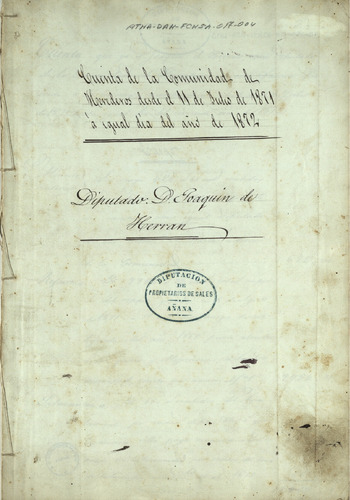 ATHA-DAH-FCHSA-
Cuenta de la Comunidad de
Herederos desde el 11 de Julio de 1871
á igual dia del año de 1872
Diputado. D. Joaquin de
Herran
DIPUTACION
DE
PROPIETARIOS DE SALES
AÑANA